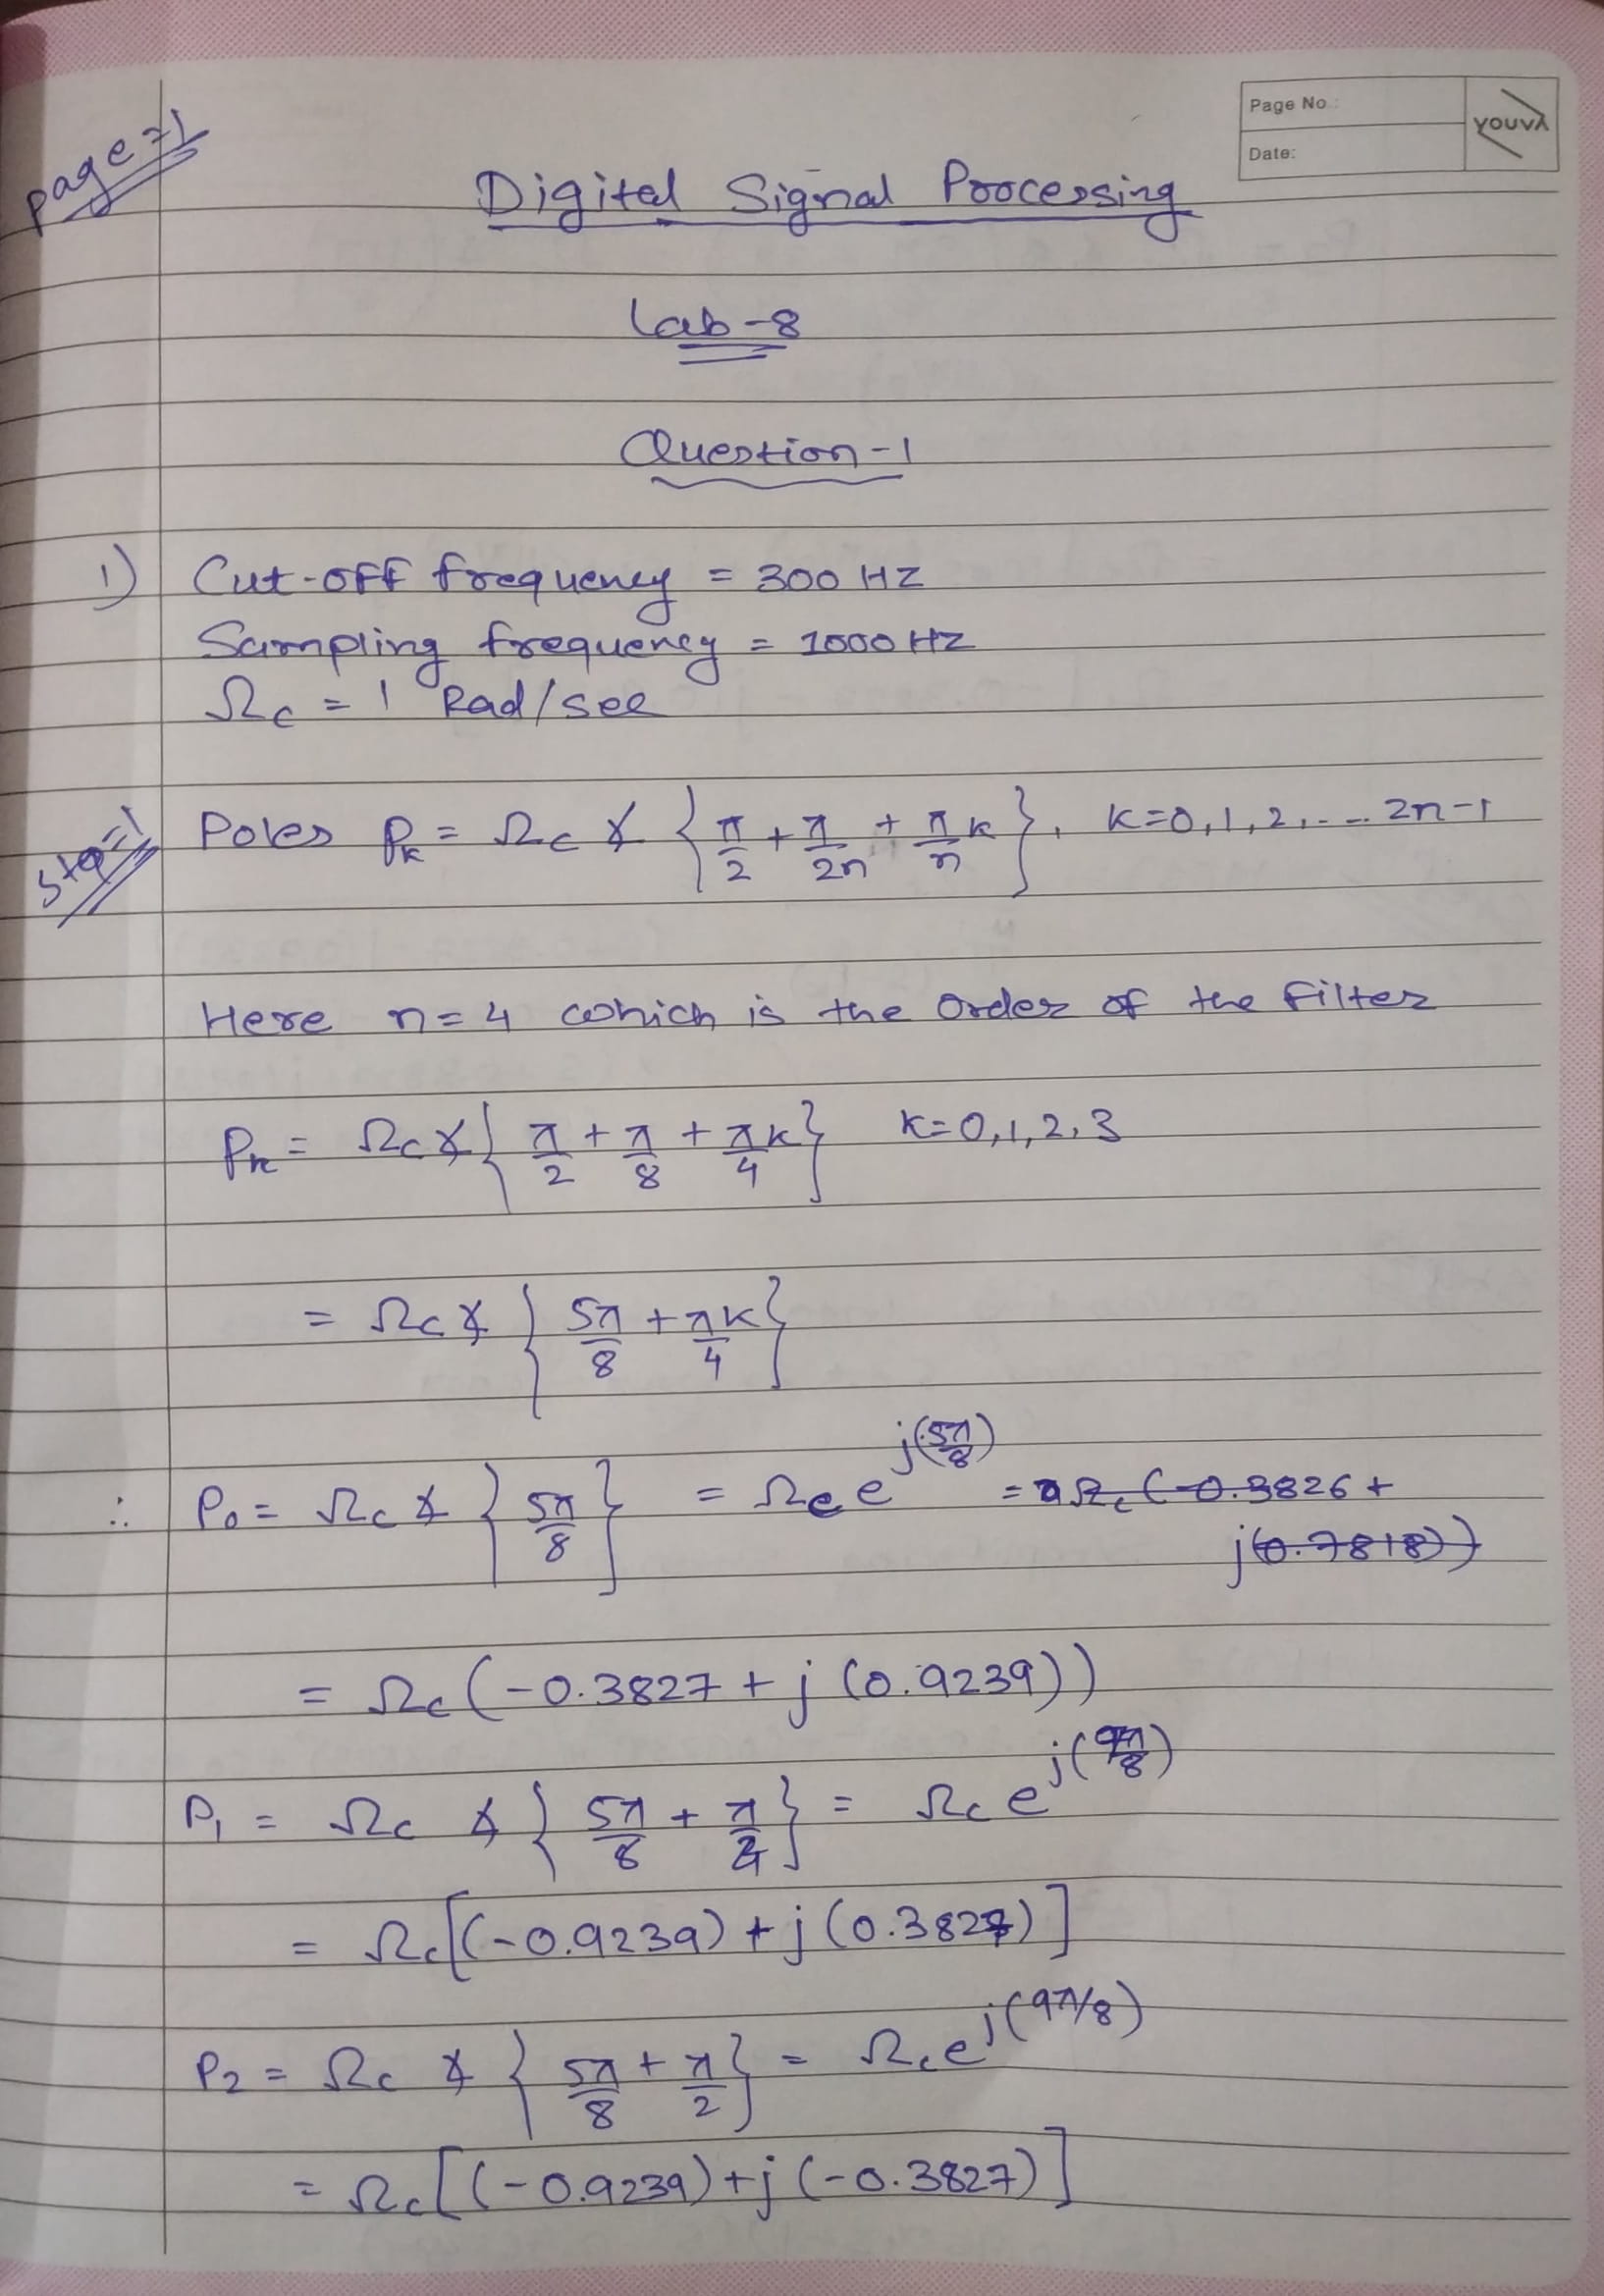 page=1
Page No.:
Date:
youva
Digital Signal Processing
Lab-8
Question-1
1) Cut-off frequency = 300 HZ
Sampling frequency = 1000 HZ
Ωc = 1 Rad/sec
Step=1
Poles Pk = Ωc ∡ {π/2 + π/2n + πk/n}, K=0,1,2,... 2n-1
Here n=4 which is the Order of the Filter
Pk = Ωc ∡ {π/2 + π/8 + πk/4} K=0,1,2,3
= Ωc ∡ {5π/8 + πk/4}
∴ P0 = Ωc ∡ {5π/8} = Ωc e^j(5π/8) = Ωc (-0.3826 +
j(0.7818))
= Ωc (-0.3827 + j (0.9239))
P1 = Ωc ∡ {5π/8 + π/4} = Ωc e^j(7π/8)
= Ωc [(-0.9239) + j (0.3827)]
P2 = Ωc ∡ {5π/8 + π/2} = Ωc e^j(9π/8)
= Ωc [(-0.9239) + j (-0.3827)]